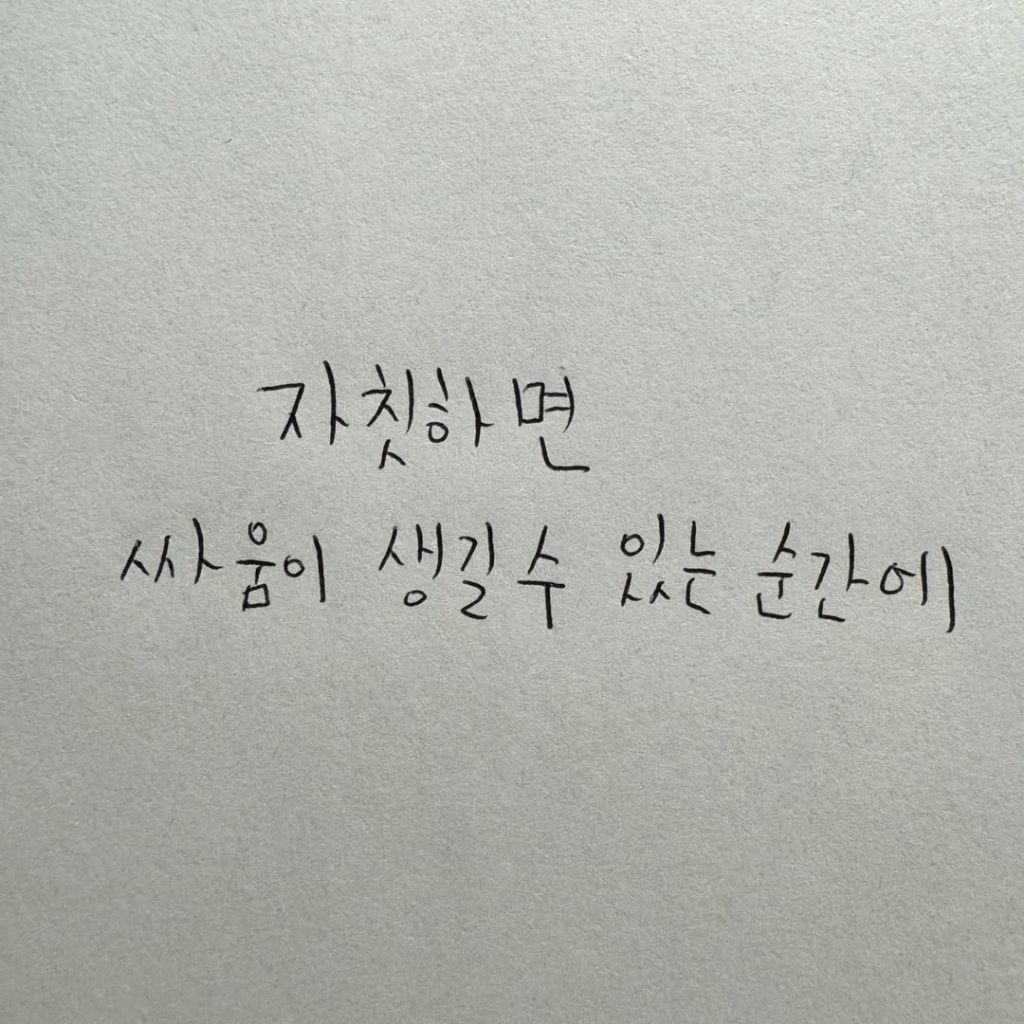 자칫하면
싸움이 생길 수 있는 순간에